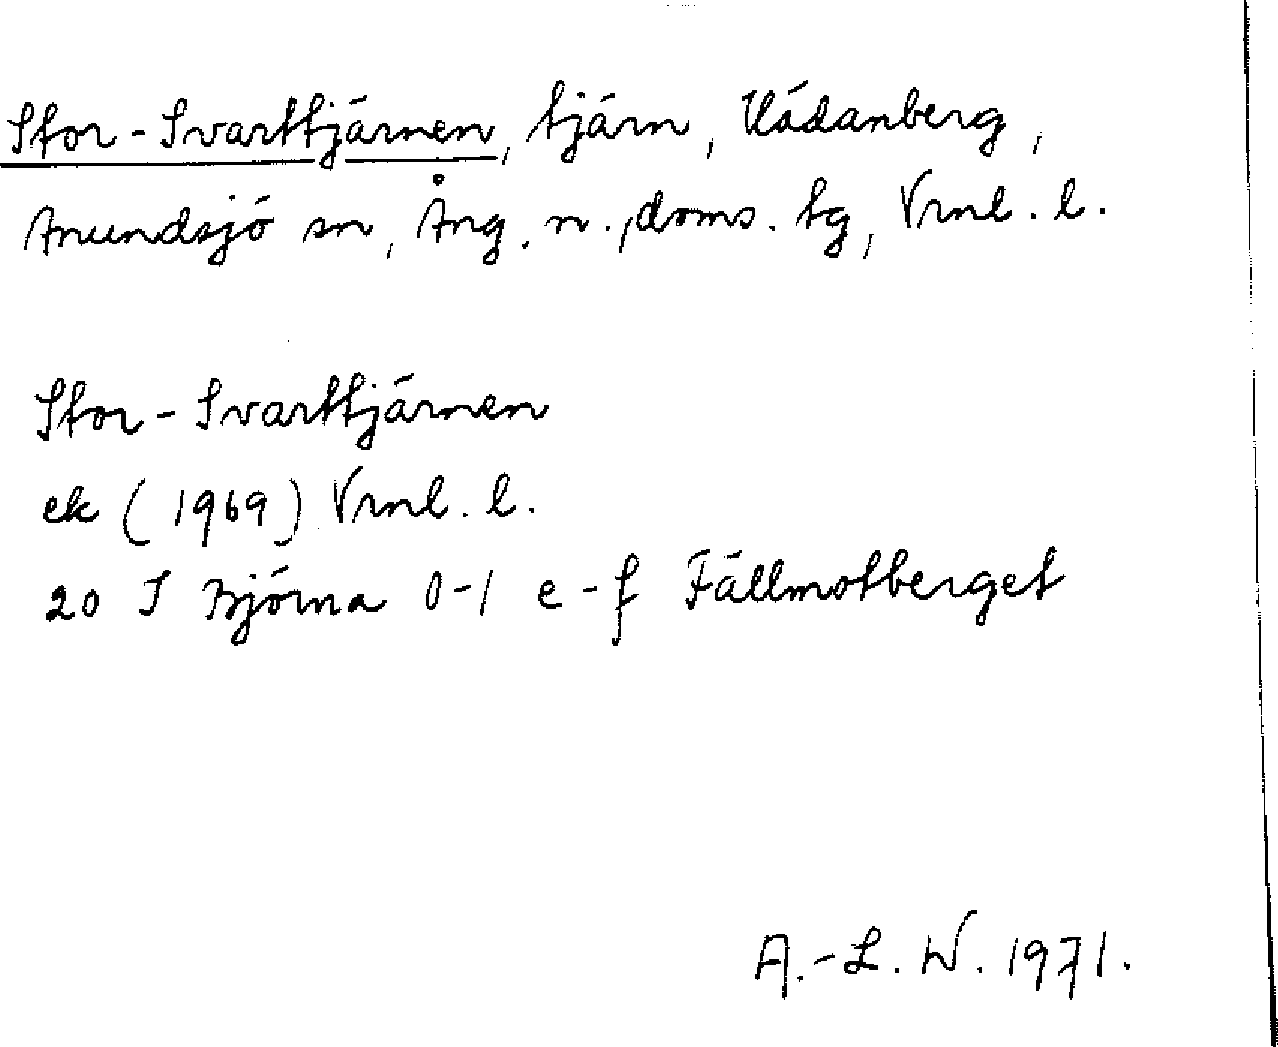 Stor-Svarttjärnen, tjärn, Kådanberg,
Anundsjö sn, Ång. n., doms. tg, Vrnl. l.
Stor-Svarttjärnen
ek (1969) Vrnl. l.
20 I Björna 0-1 e-f Fällmotberget
A.-L. W. 1971.